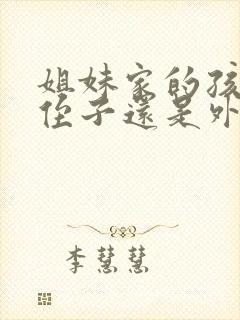 姐妹家的孩
侄子還是外
李慧慧